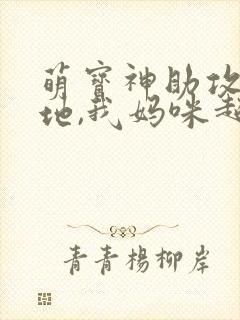 萌寶神助攻
地,我媽咪超
青青楊柳岸